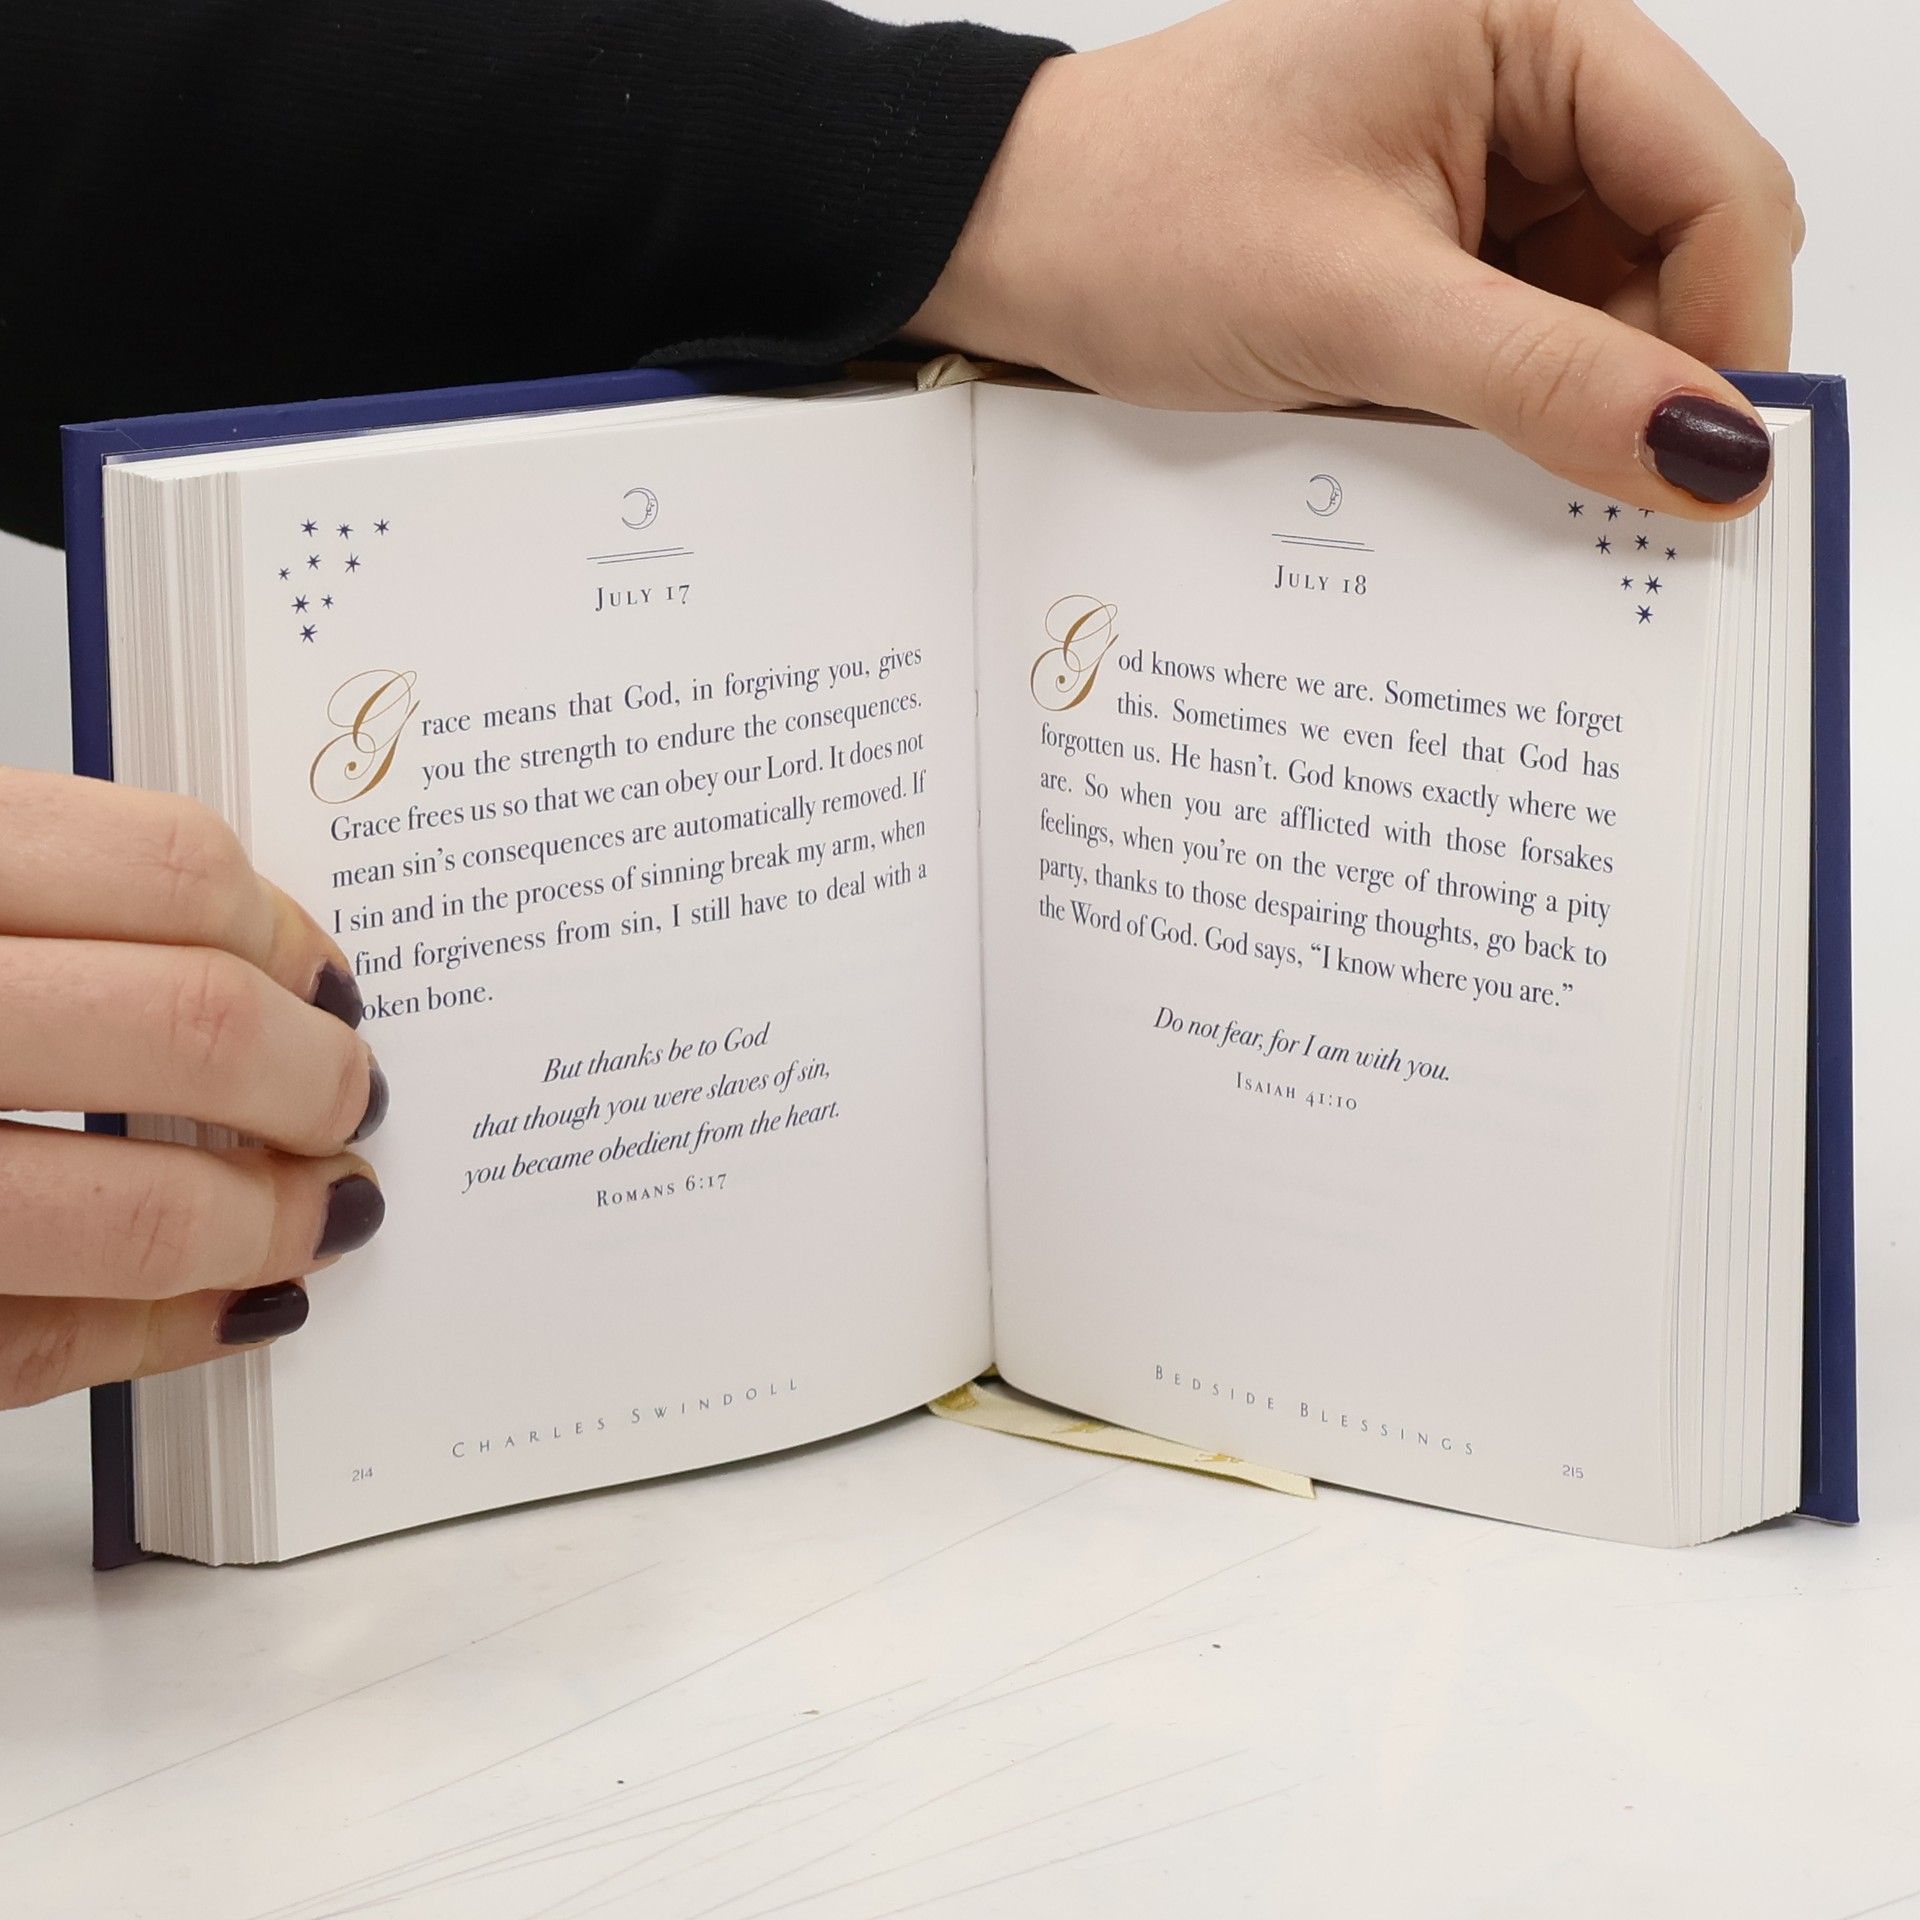 July 17
Grace means that God, in forgiving you, gives
you the strength to endure the consequences.
Grace frees us so that we can obey our Lord. It does not
mean sin's consequences are automatically removed. If
I sin and in the process of sinning break my arm, when
find forgiveness from sin, I still have to deal with a
oken bone.
But thanks be to God
that though you were slaves of sin,
you became obedient from the heart.
Romans 6:17
Charles Swindoll
214
July 18
God knows where we are. Sometimes we forget
this. Sometimes we even feel that God has
forgotten us. He hasn't. God knows exactly where we
are. So when you are afflicted with those forsakes
feelings, when you're on the verge of throwing a pity
party, thanks to those despairing thoughts, go back to
the Word of God. God says, “I know where you are.”
Do not fear, for I am with you.
Isaiah 41:10
Bedside Blessings
215